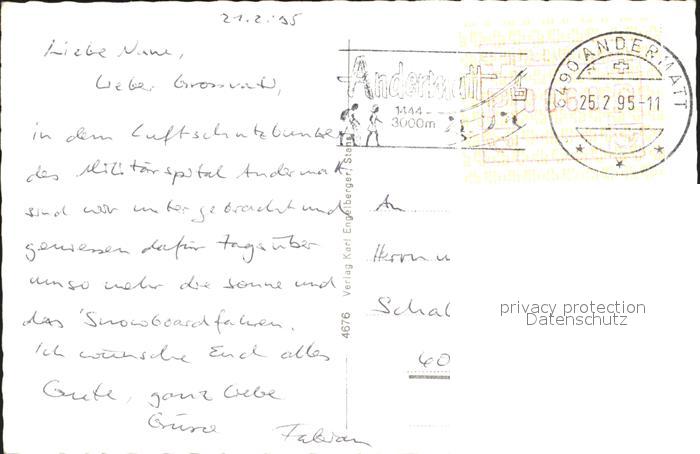 21.2.95
Liebe Nane,
lieber Grossvati,
in dem Luftschutzbunker
des Militärspital Andermatt
sind wir untergebracht und
geniessen dafür tagsüber
umso mehr die Sonne und
das Snowboardfahren.
Ich wünsche Euch alles
Gute, ganz liebe
Grüsse Fabian
4676 Verlag Karl Engelberger, Stans
Andermatt
1444-
3000m
6490 ANDERMATT
25.2.95-11
An
Herrn u
Schal
60
privacy protection
Datenschutz